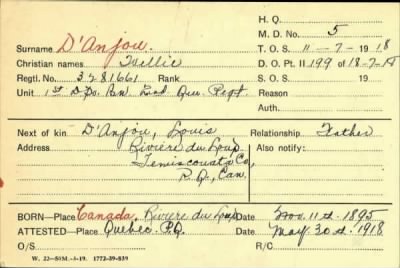 H. Q.
M. D. No. 5
Surname D'Anjou.
T. O. S. 11-7-1918
Christian names
D. O. Pt. II 199 of 18-7-18
Regtl. No. 3281661 Rank
S. O. S. 19
Unit 1st Dpo. Bn. 2nd Que. Regt.
Reason
Auth.
Next of kin D'Anjou, Louis
Relationship Father
Address Rivière du Loup
Also notify:
Temiscouata Co,
P.Q., Can.
BORN—Place Canada, Rivière du Loup Date Nov. 11th 1895
ATTESTED—Place Quebec. P.Q. Date May 30th 1918
O/S
R/C
W. 22–50M.-3-19. 1772-39-839